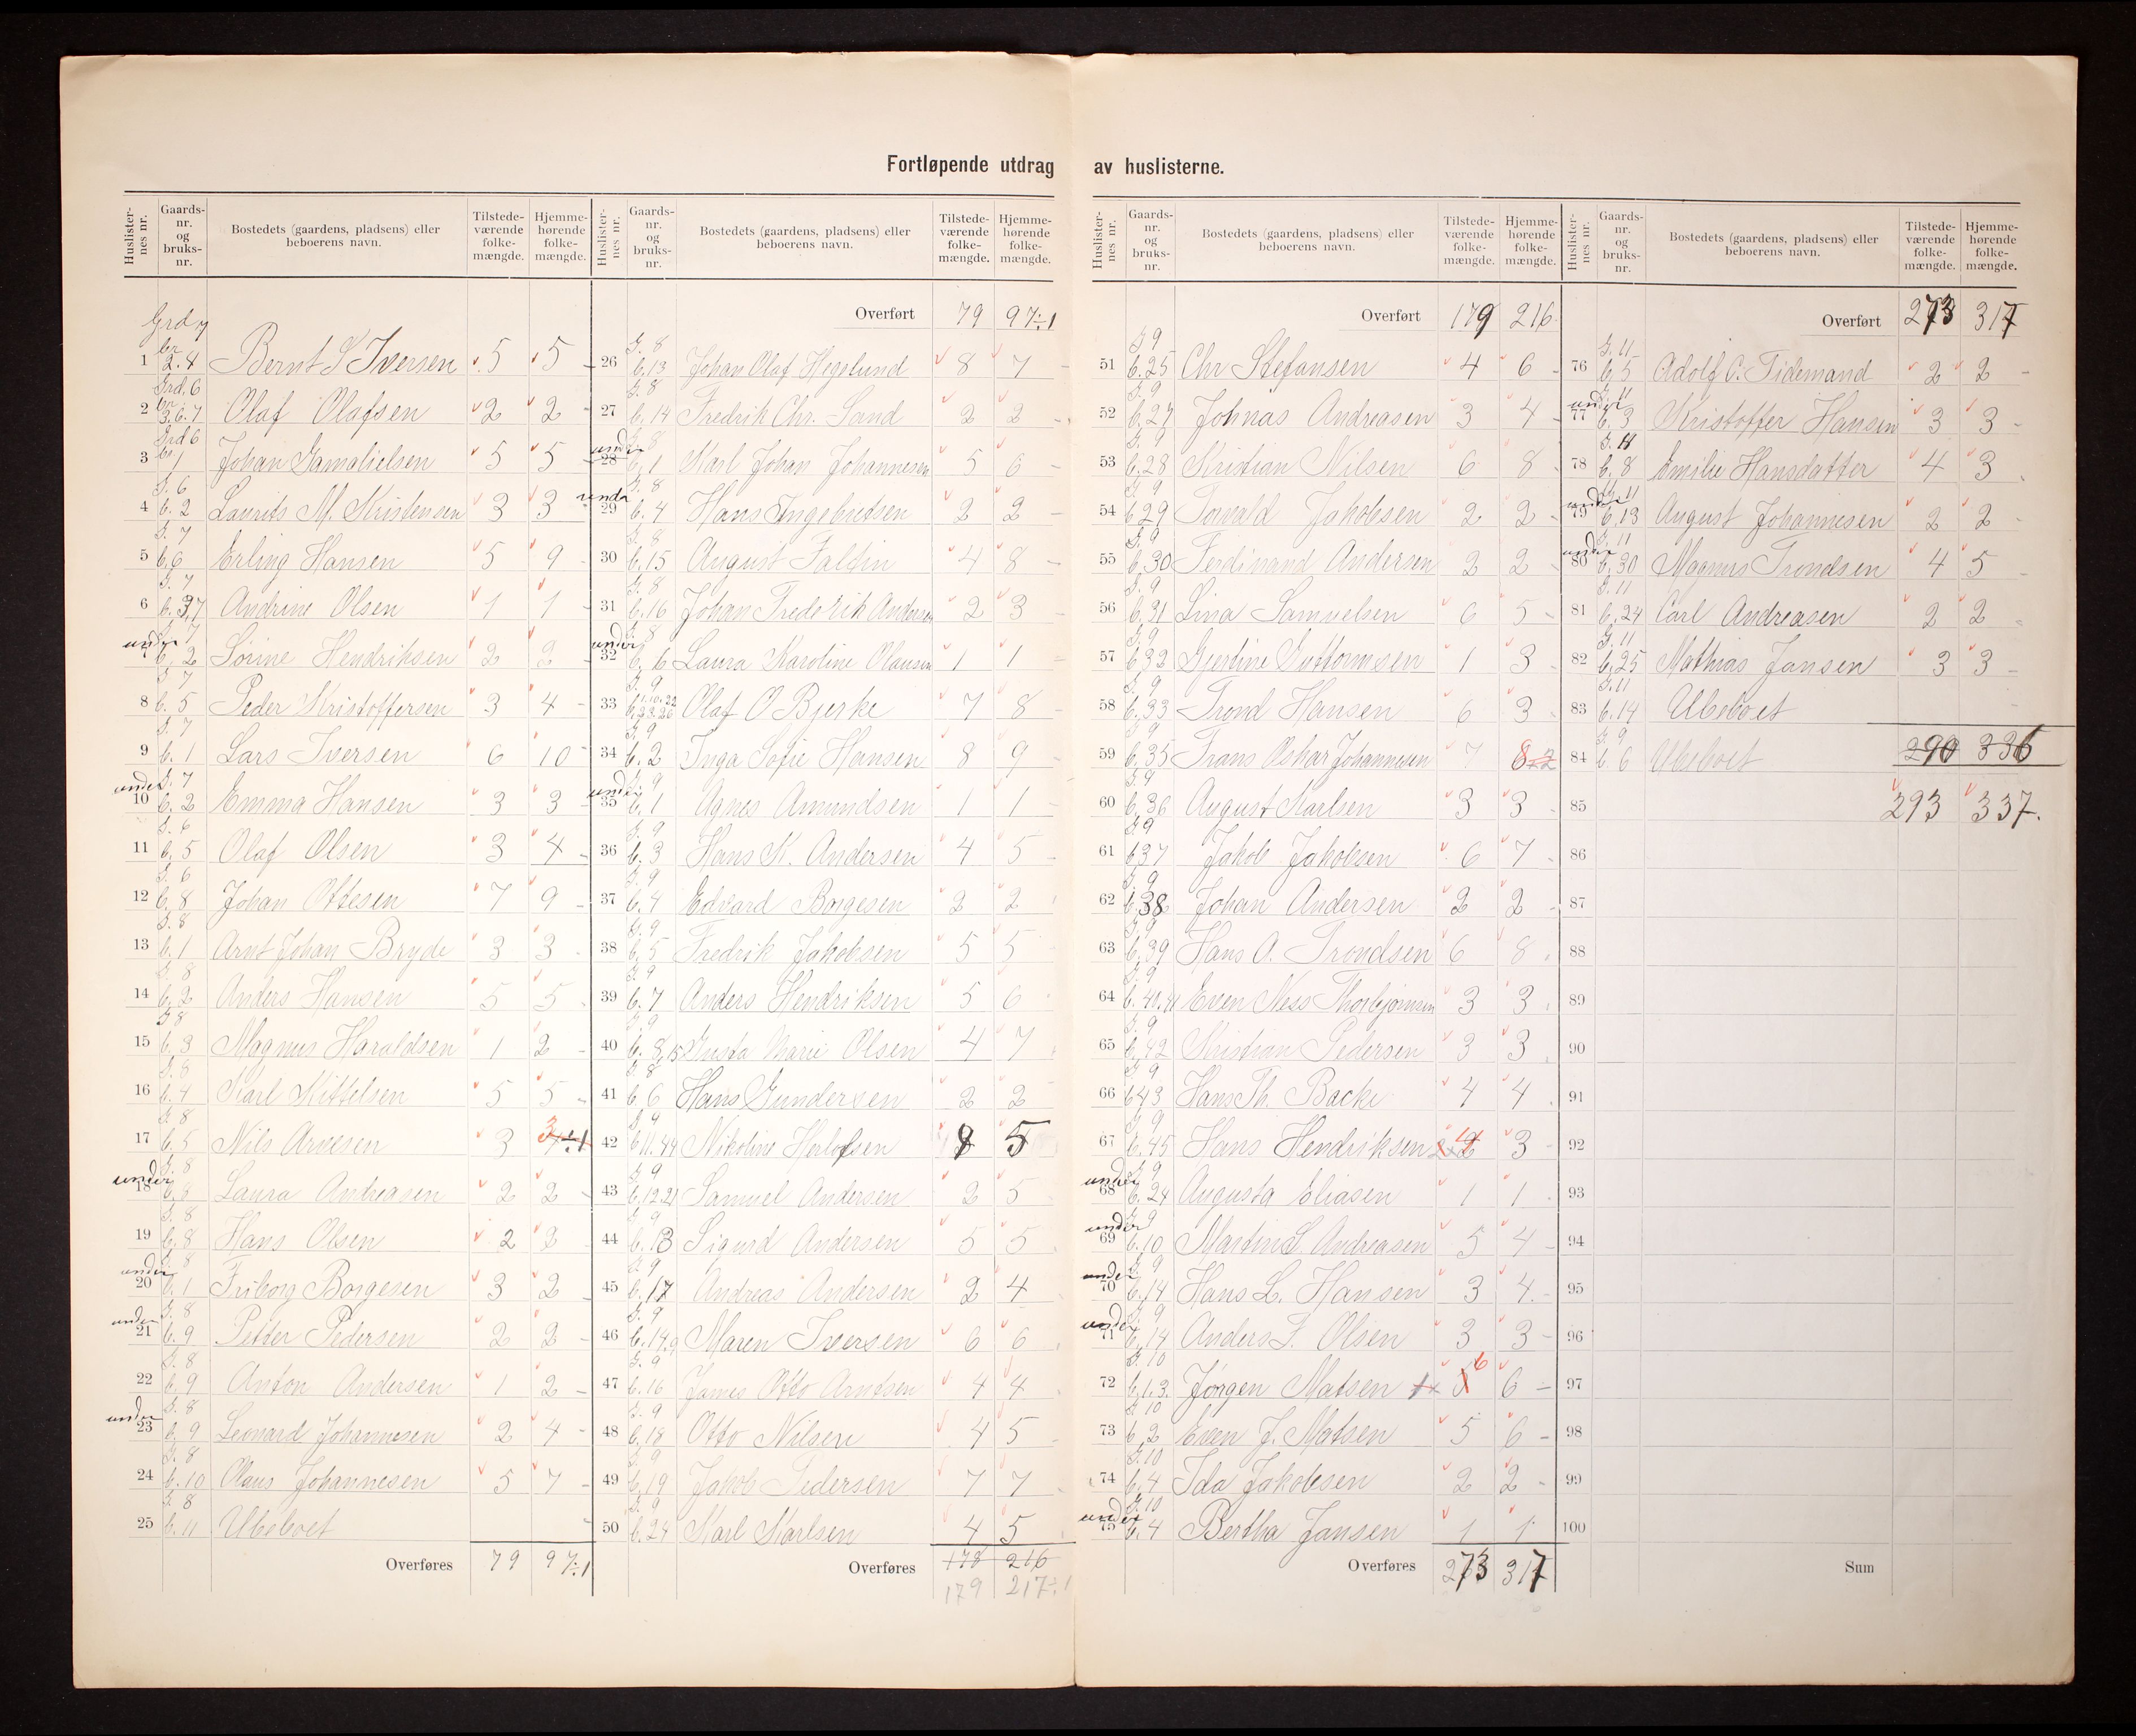 Fortløpende utdrag av huslisterne.
Huslisternes nr. Gaardsnr. og bruksnr. Bostedets (gaardens, pladsens) eller beboerens navn. Tilstedeværende folkemængde. Hjemmehørende folkemængde.
Grd 7
1 br 2.4 Bernt S Iversen 5 5
2 Grd. 6 br. 3.6.7 Olaf Olafsen 2 2
3 Grd 6 br. 1 Johan Gamalielsen 5 5
4 G. 6 b. 2 Laurits M. Kristensen 3 3
5 G. 7 b. 6 Erling Hansen 5 9
6 G. 7 b. 3,7 Andrine Olsen 1 1
under b. 2 Sørine Hendriksen 2 2
8 G. 7 b. 5 Peder Kristoffersen 3 4
9 G. 7 b. 1 Lars Iversen 6 10
under 10 G. 7 b. 2 Emma Hansen 3 3
11 G. 6 b. 5 Olaf Olsen 3 4
12 G. 6 b. 8 Johan Ottesen 7 9
13 G. 8 b. 1 Arnt Johan Bryde 3 3
14 G. 8 b. 2 Anders Hansen 5 5
15 G. 8 b. 3 Magnus Haraldsen 1 2
16 G. 8 b. 4 Karl Kittelsen 5 5
17 G. 8 b. 5 Nils Arvesen 3 3 4÷1
under 18 G. 8 b. 8 Laura Andreasen 2 2
19 G. 8 b. 8 Hans Olsen 2 3
under 20 G. 8 b. 1 Friborg Borgesen 3 2
under 21 G. 8 b. 9 Petter Pedersen 2 2
22 G. 8 b. 9 Anton Andersen 1 2
under 23 G. 8 b. 9 Leonard Johannesen 2 4
24 G. 8 b. 10 Olaus Johannesen 5 7
25 G. 8 b. 11 Ubeboet
Overføres 79 97÷1
Huslisternes nr. Gaardsnr. og bruksnr. Bostedets (gaardens, pladsens) eller beboerens navn. Tilstedeværende folkemængde. Hjemmehørende folkemængde.
Overført 79 97÷1
26 G. 8 b. 13 Johan Olaf Hegelund 8 7
27 G. 8 b. 14 Fredrik Chr. Sand 2 2
under 28 G. 8 b. 1 Karl Johan Johannesen 5 6
under 29 G. 8 b. 4 Hans Ingebretsen 2 2
30 G. 8 b. 15 August Faltin 4 8
31 G. 8 b. 16 Johan Frederik Andersen 2 3
under 32 G. 8 b. 6 Laura Karoline Olausen 1 1
33 G. 9 b. 1.10.22 23.26 Olaf O Bjerke 7 8
34 G. 9 b. 2 Inga Sofie Hansen 8 9
under 35 G. 9 b. 1 Agnes Amundsen 1 1
36 G. 9 b. 3 Hans K. Andersen 4 5
37 G. 9 b. 4 Edvard Borgesen 2 2
38 G. 9 b. 5 Fredrik Jakobsen 5 5
39 G. 9 b. 7 Anders Hendriksen 5 6
40 G. 9 b. 8,15 Gusta Marie Olsen 4 7
41 G. 8 b. 6 Hans Gundersen 2 2
42 G. 9 b. 11.44 Nikoline Herlofsen 8 5
43 G. 9 b. 12.21 Samuel Andersen 2 5
44 G. 9 b. 13 Sigurd Andersen 5 5
45 G. 9 b. 17 Andreas Andersen 2 4
46 G. 9 b. 14.9 Maren Iversen 6 6
47 G. 9 b. 16 James Otto Arntsen 4 4
48 G. 9 b. 18 Otto Nilsen 4 5
49 G. 9 b. 19 Jakob Pedersen 7 7
50 G. 9 b. 24 Karl Karlsen 4 5
Overføres 178 216
179 217÷1
Huslisternes nr. Gaardsnr. og bruksnr. Bostedets (gaardens, pladsens) eller beboerens navn. Tilstedeværende folkemængde. Hjemmehørende folkemængde.
Overført 179 216
51 G 9 b. 25 Chr Stefansen 4 6
52 G. 9 b. 27 Johnas Andreasen 3 4
53 G. 9 b. 28 Kristian Nilsen 6 8
54 G. 9 b. 29 Torvald Jakobsen 2 2
55 G. 9 b. 30 Ferdinand Andersen 2 2
56 G. 9 b. 31 Lina Samuelsen 6 5
57 G. 9 b. 32 Gjertine Guttormsen 1 3
58 G. 9 b. 33 Trond Hansen 6 3
59 G. 9 b. 35 Frans Oskar Johannesen 7 8
60 G. 9 b. 36 August Karlsen 3 3
61 G. 9 b. 37 Jakob Jakobsen 6 7
62 G. 9 b. 38 Johan Andersen 2 2
63 G. 9 b. 39 Hans O. Trondsen 6 8
64 G. 9 b. 40.41 Even Ness Thorbjørnsen 3 3
65 G. 9 b. 42 Kristian Pedersen 3 3
66 G. 9 b. 43 Hans Th. Backe 4 4
67 G. 9 b. 45 Hans Hendriksen 4 3
under 68 G. 9 b. 24 Augusta Eliasen 1 1
under 69 G. 9 b. 10 Martin L Andreasen 5 4
under 70 G. 9 b. 14 Hans L. Hansen 3 4
under 71 G. 9 b. 14 Anders F. Olsen 3 3
72 G. 10 b. 1.3. Jørgen Matsen 6 6
73 G. 10 b. 2 Even J. Matsen 5 6
74 G. 10 b. 4 Ida Jakobsen 2 2
under 75 G. 10 b. 4 Bertha Jansen 1 1
Overføres 273 317
Huslisternes nr. Gaardsnr. og bruksnr. Bostedets (gaardens, pladsens) eller beboerens navn. Tilstedeværende folkemængde. Hjemmehørende folkemængde.
Overført 273 317
76 G. 11 b. 5 Adolf C. Tidemand 2 2
under 77 G. 11 b. 3 Kristoffer Hansen 3 3
78 G. 11 b. 8 Emilie Hansdatter 4 3
under 79 G. 11 b. 13 August Johannesen 2 2
under 80 G. 11 b. 30 Magnus Trondsen 4 5
81 G. 11 b. 24 Carl Andreasen 2 2
82 G. 11 b. 25 Mathias Jansen 3 3
83 G. 11 b. 14 Ubeboet
84 G 9 b 6 Ubeboet 290 336
85 293 337.
86
87
88
89
90
91
92
93
94
95
96
97
98
99
100
Sum